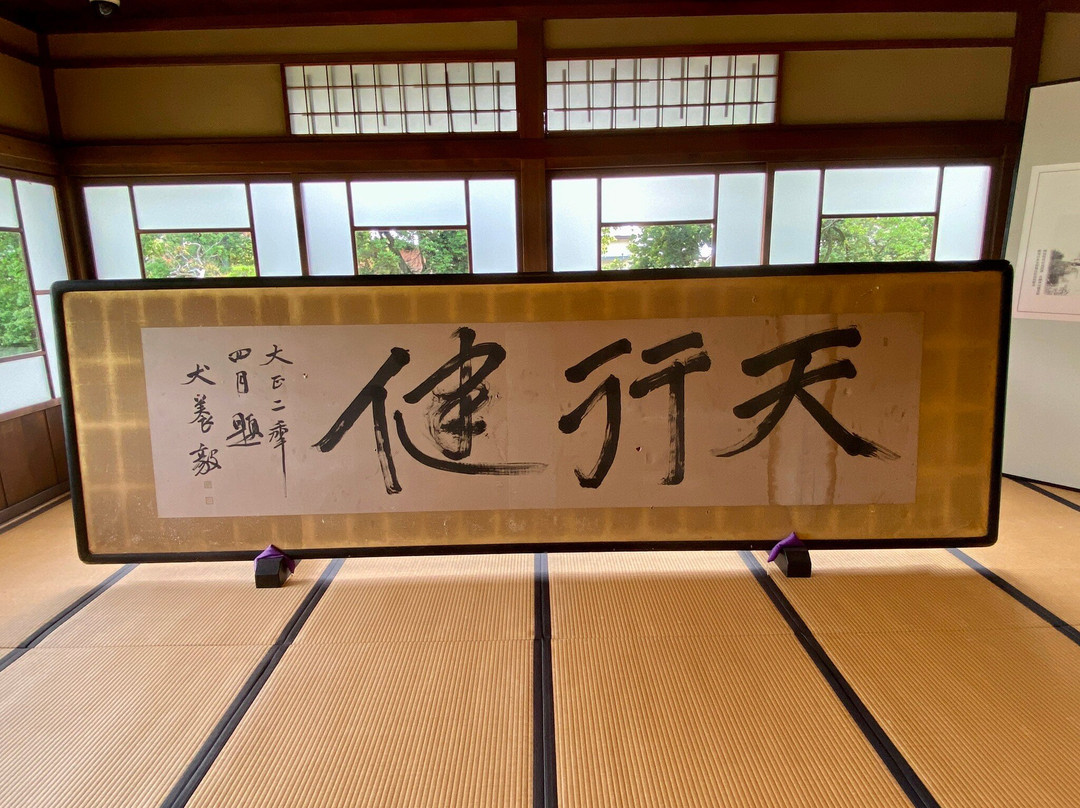 天行健
大正二年
四月題
犬養毅